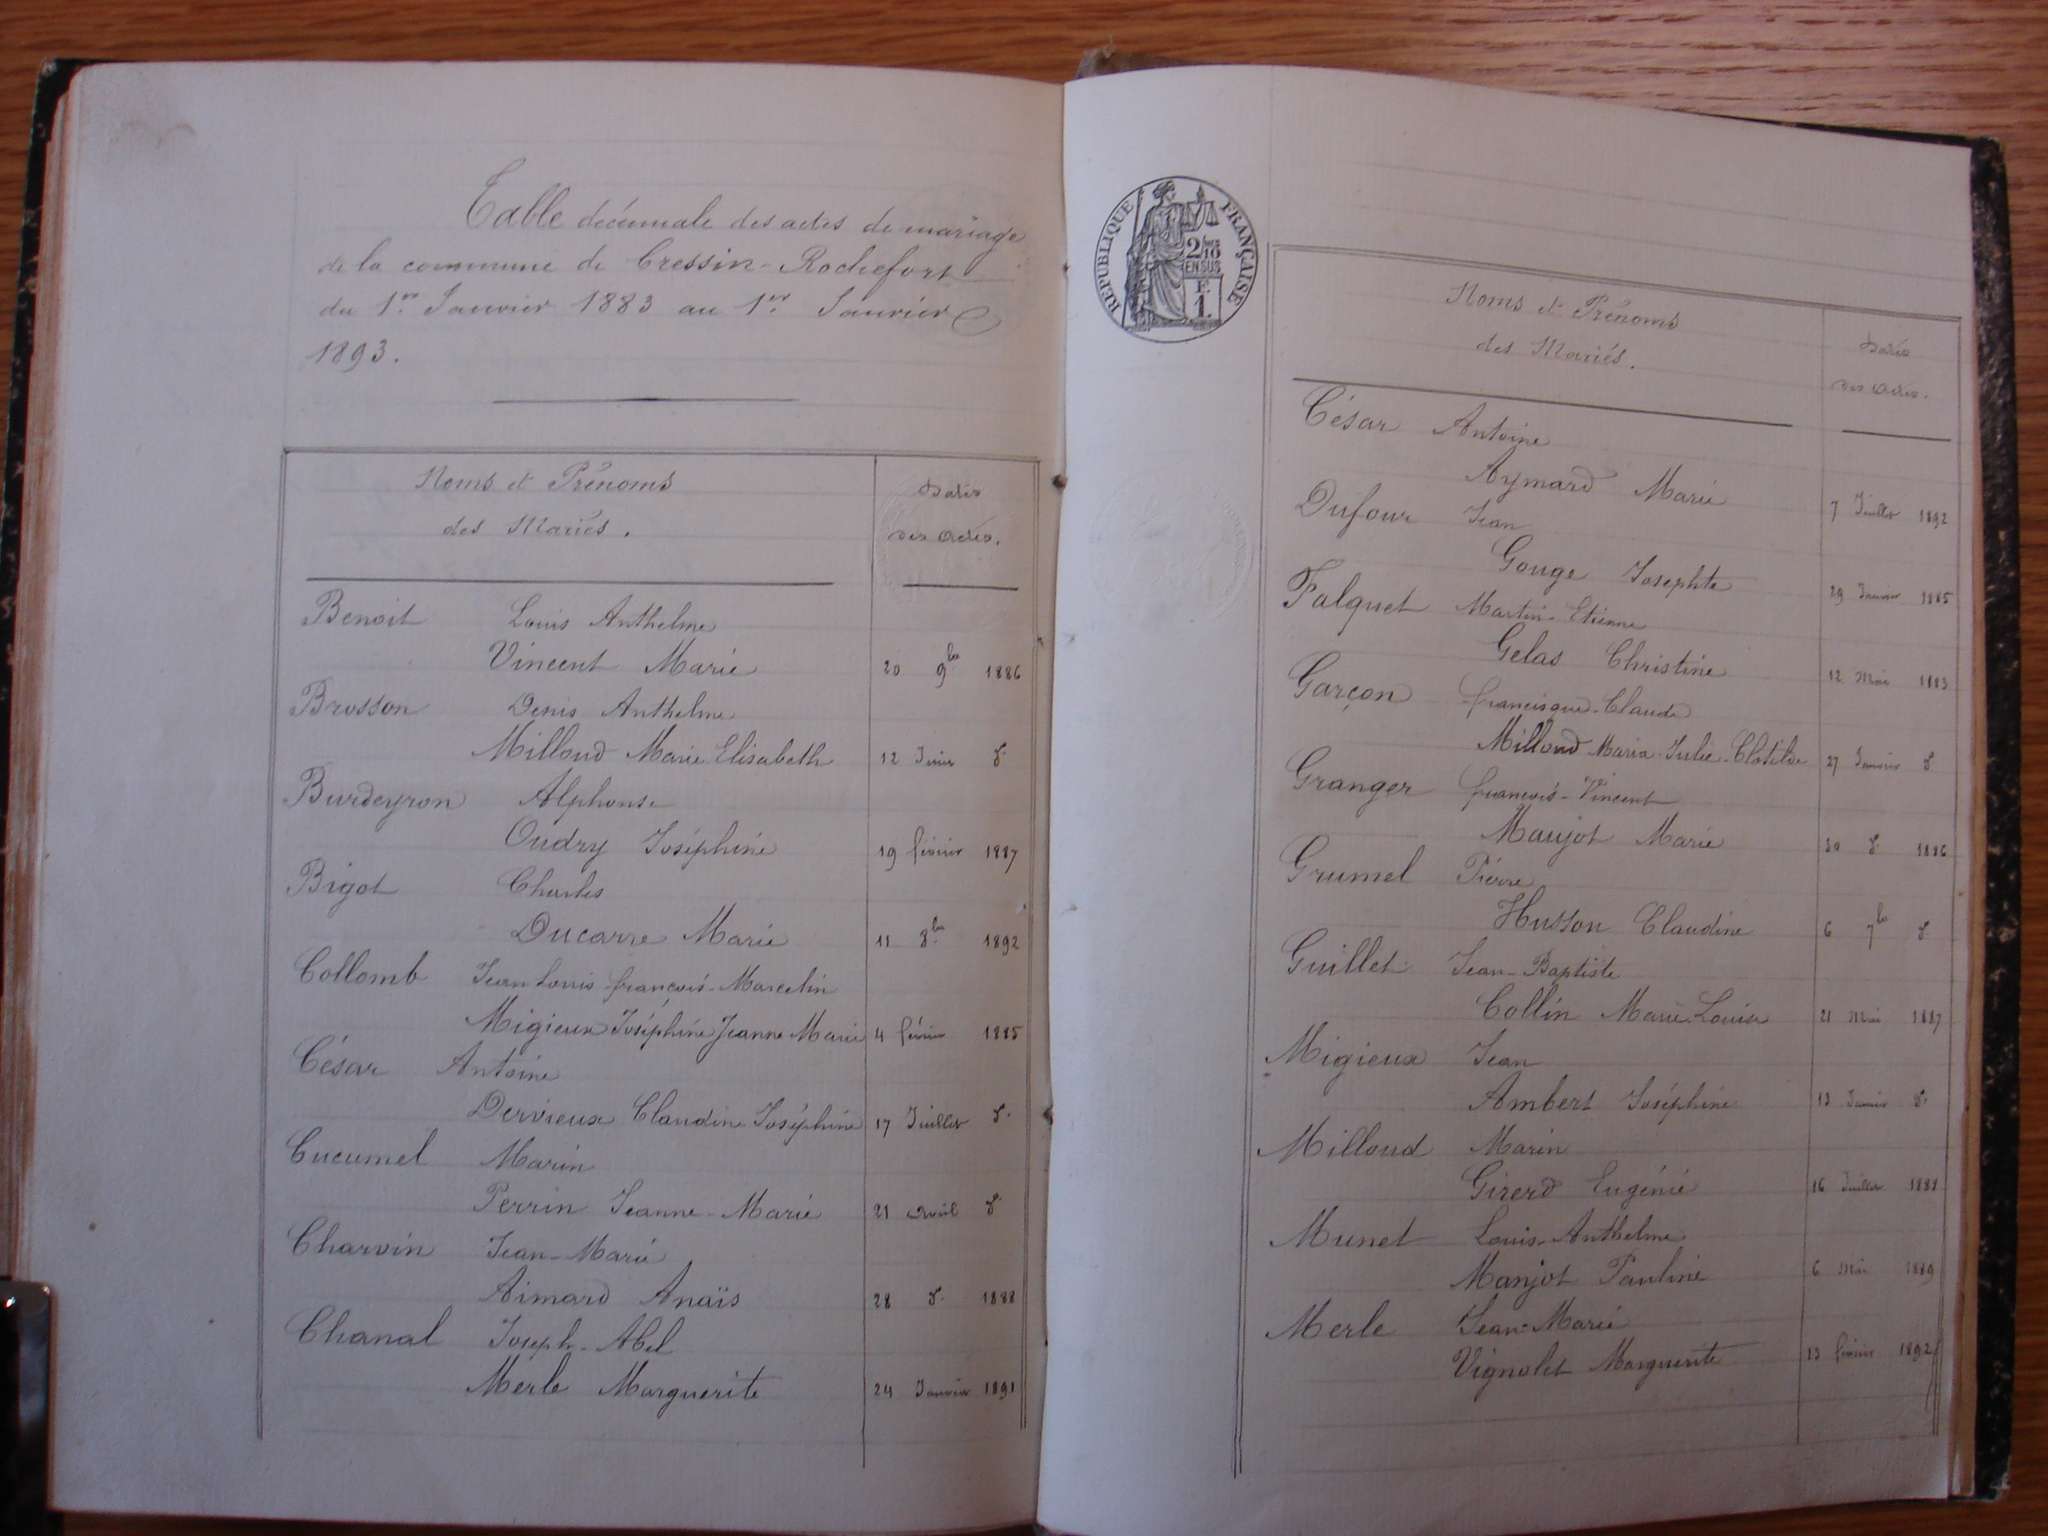 Table décennale des actes de mariage
de la commune de Cressin-Rochefort
du 1er Janvier 1883 au 1er Janvier
1893.
Noms et Prénoms
des Mariés.
Dates
des actes.
Benoit Louis Anthelme
Vincent Marie 20 9bre 1886
Brosson Denis Anthelme
Milloud Marie Elisabeth 12 Juin d°
Burdeyron Alphonse
Oudry Joséphine 19 février 1887
Bigot Charles
Ducarre Marie 11 8bre 1892
Collomb Jean Louis-françois-Marcelin
Migieux Joséphine Jeanne Marie 4 février 1885
César Antoine
Dervieux Claudine Joséphine 17 Juillet d°
Cucumel Marin
Perrin Jeanne-Marie 21 avril d°
Charvin Jean-Marie
Aimard Anaïs 28 d° 1888
Chanal Joseph-Abel
Merle Marguerite 24 Janvier 1891
REPUBLIQUE FRANÇAISE
2/10
EN SUS
F.
1.
Noms et Prénoms
des Mariés.
Dates
des actes.
César Antoine
Aymard Marie 7 Juillet 1892
Dufour Jean
Gouge Josephte 29 Janvier 1885
Falquet Martin-Etienne
Gelas Christine 12 Mai 1883
Garçon francisque-Claude
Milloud Maria-Julie-Clotilde 27 Janvier d°
Granger françois-Vincent
Maujot Marie 30 d° 1886
Grumel Pierre
Husson Claudine 6 7bre d°
Guillet Jean-Baptiste
Collin Marie-Louise 21 Mai 1887
Migieux Jean
Ambert Joséphine 13 Janvier d°
Milloud Marin
Girerd Eugénie 16 Juillet 1888
Munet Louis-Anthelme
Manjot Pauline 6 Mai 1889
Merle Jean-Marie
Vignolet Marguerite 13 février 1892